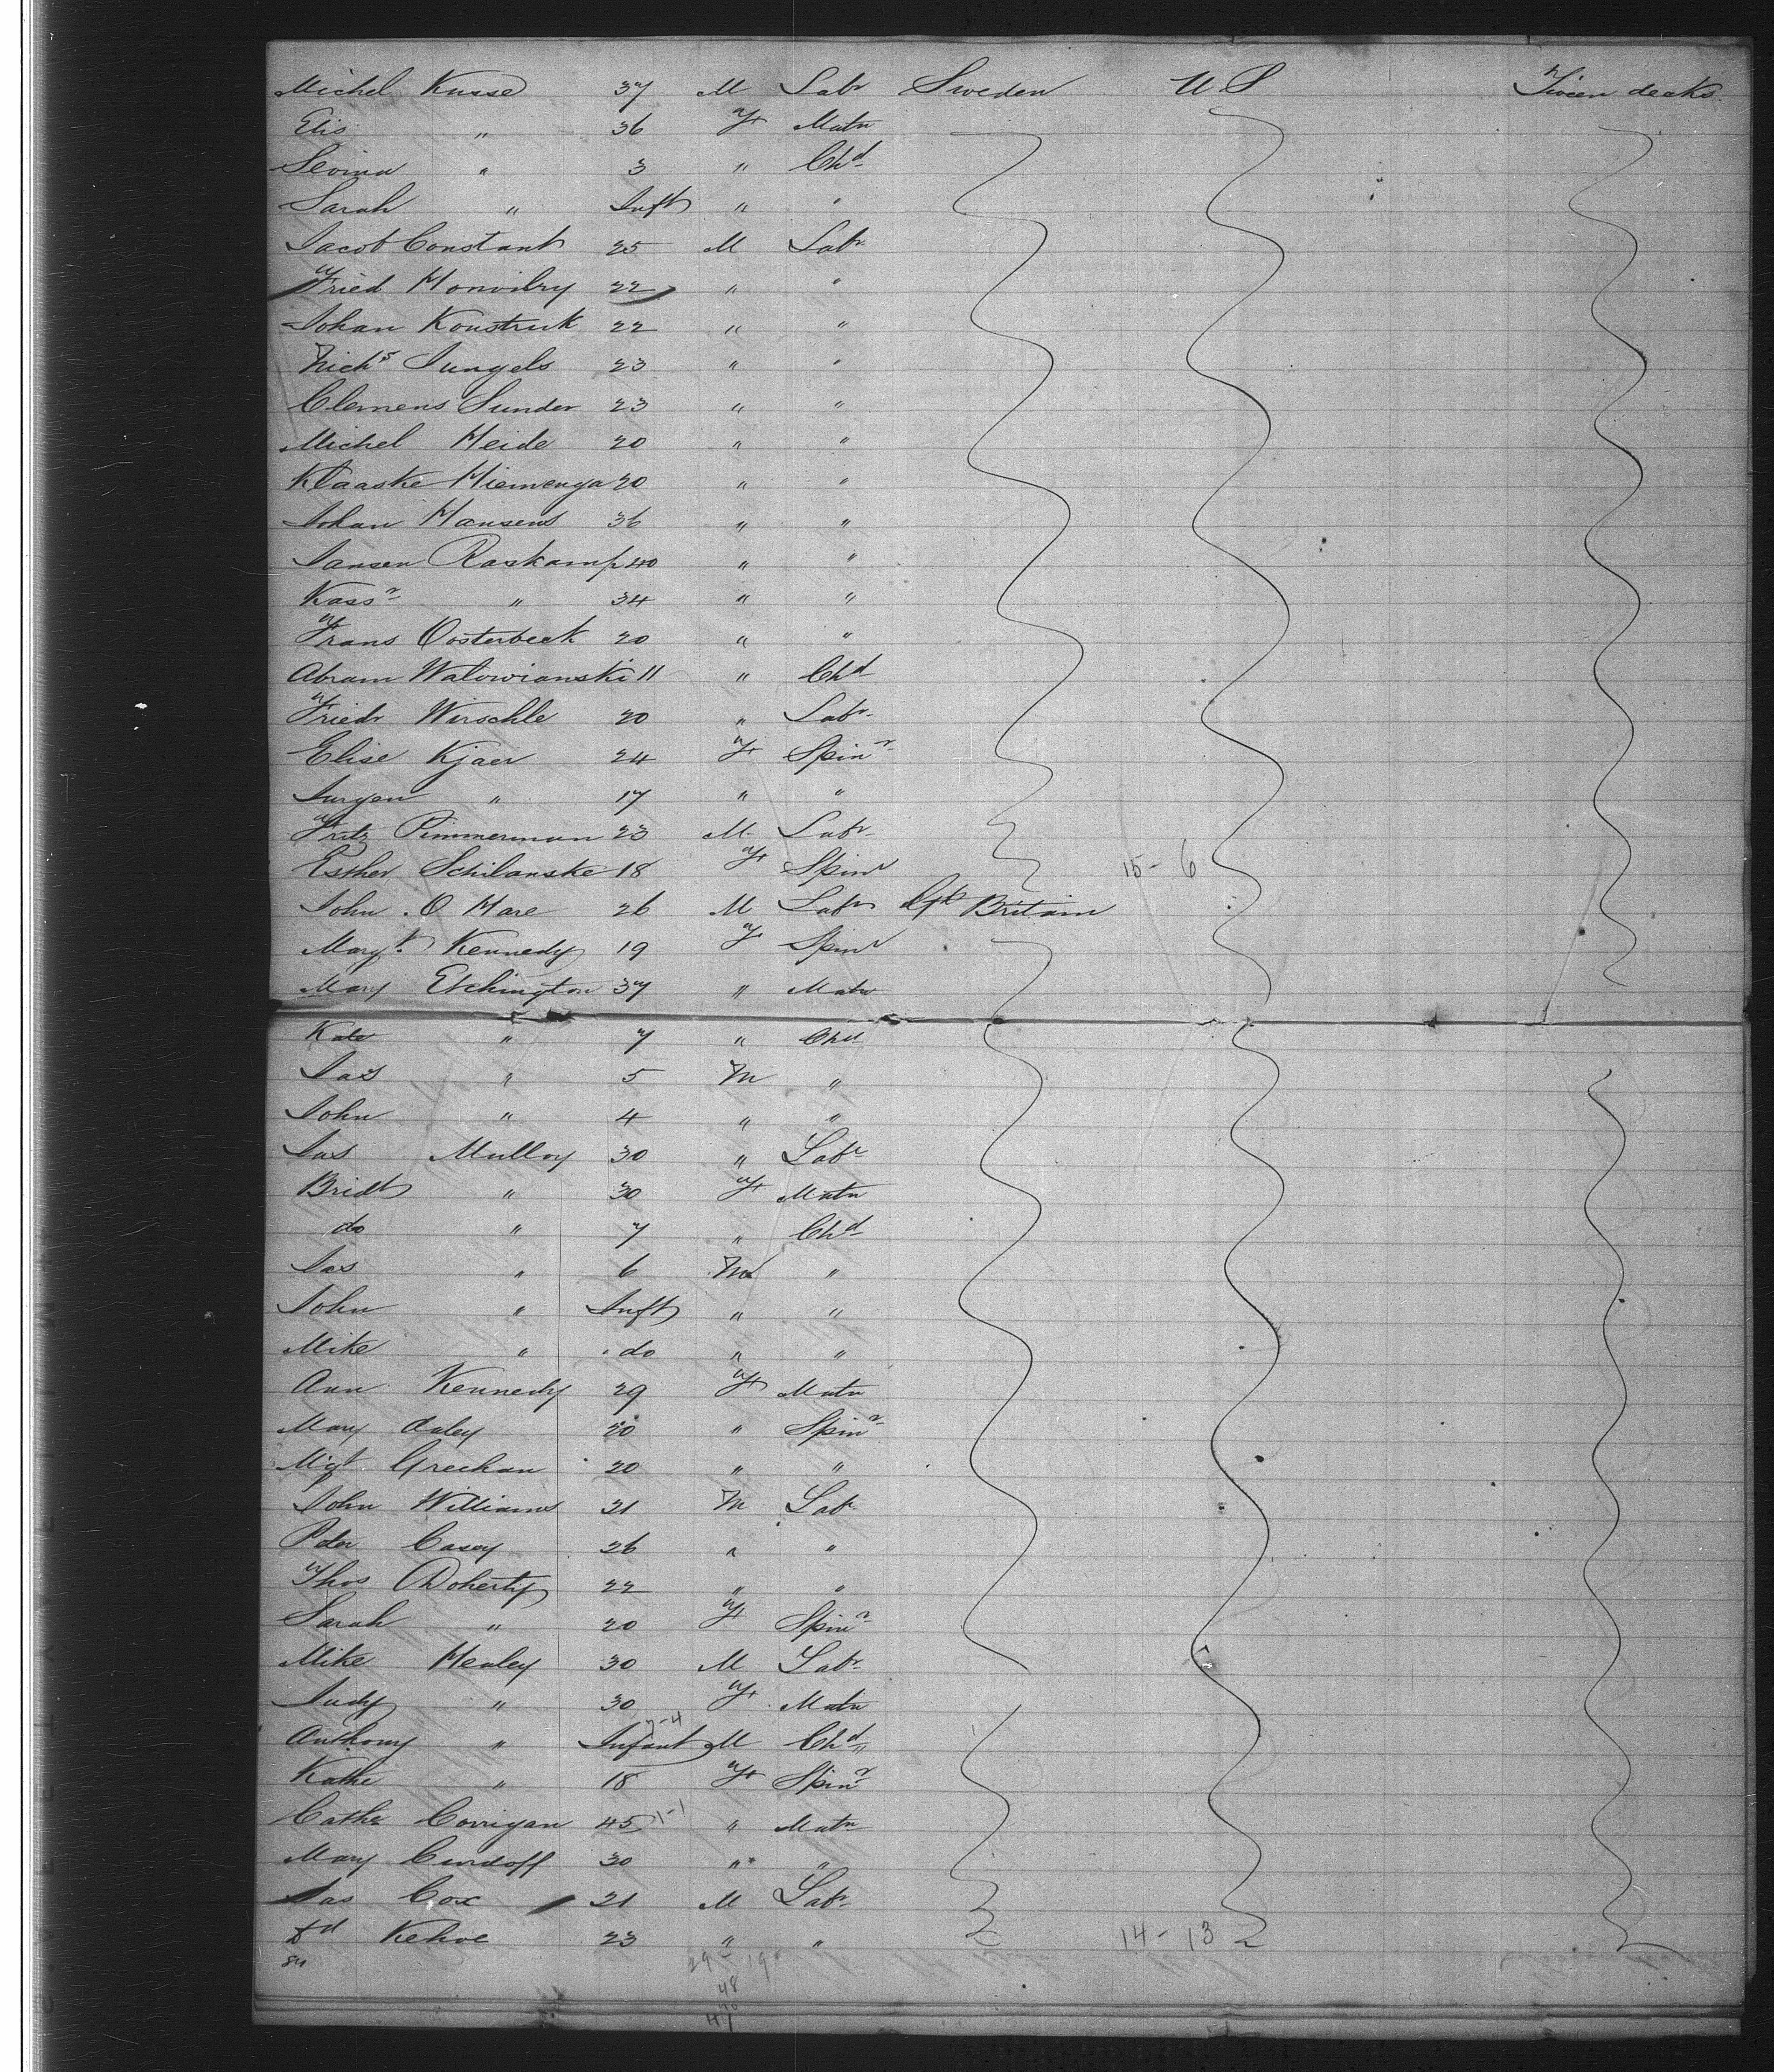 Michel Kusse 37 M Labr Sweden U S Tween decks
Elis " 36 F Matn
Sevina " 3 " Chd
Sarah " Inft " "
Jacob Constant 25 M Labr
Fried Honvilry 22 " "
Johan Konstruk 22 " "
Nichs Jungels 23 " "
Clemens Sunder 23 " "
Michel Heide 20 " "
Klaaske Hiemenga 20 " "
Johan Hansens 36 " "
Jansen Raskamp 40 " "
Kassn " 34 " "
Frans Oosterbeek 20 " "
Abram Walowianski 11 " Chd
Friedr Wirschle 20 " Labr
Elise Kjaer 24 F Spinr
Jurgen " 17 " "
Fritz Pimmerman 23 M Labr
Esther Schilanske 18 F Spinr 15-6
John O Hare 26 M Labr Gt Britain
Margt Kennedy 19 F Spinr
Mary Etchington 37 " Matn
Kate " 7 " Chd
Jas " 5 M "
John " 4 " "
Jas Mulloy 30 " Labr
Bridt " 30 F Matn
do " 7 " Chd
Jas " 6 M "
John " Inft " "
Mike " do " "
Ann Kennedy 29 F Matn
Mary Daley 20 " Spinr
Mgt Grechan 20 " "
John Williams 21 M Labr
Peter Casey 26 " "
Thos Doherty 22 " "
Sarah " 20 F Spinr
Mike Healey 30 M Labr
Judy " 30 F Matn
Anthony " Infant M Chd
Kathe " 18 F Spinr
Cathe Corrigan 45 1-1 " Matn
Mary Cundoff 30 " "
Jas Cox 21 M Labr
Ed Kehoe 23 " " 14-13
29-19
48